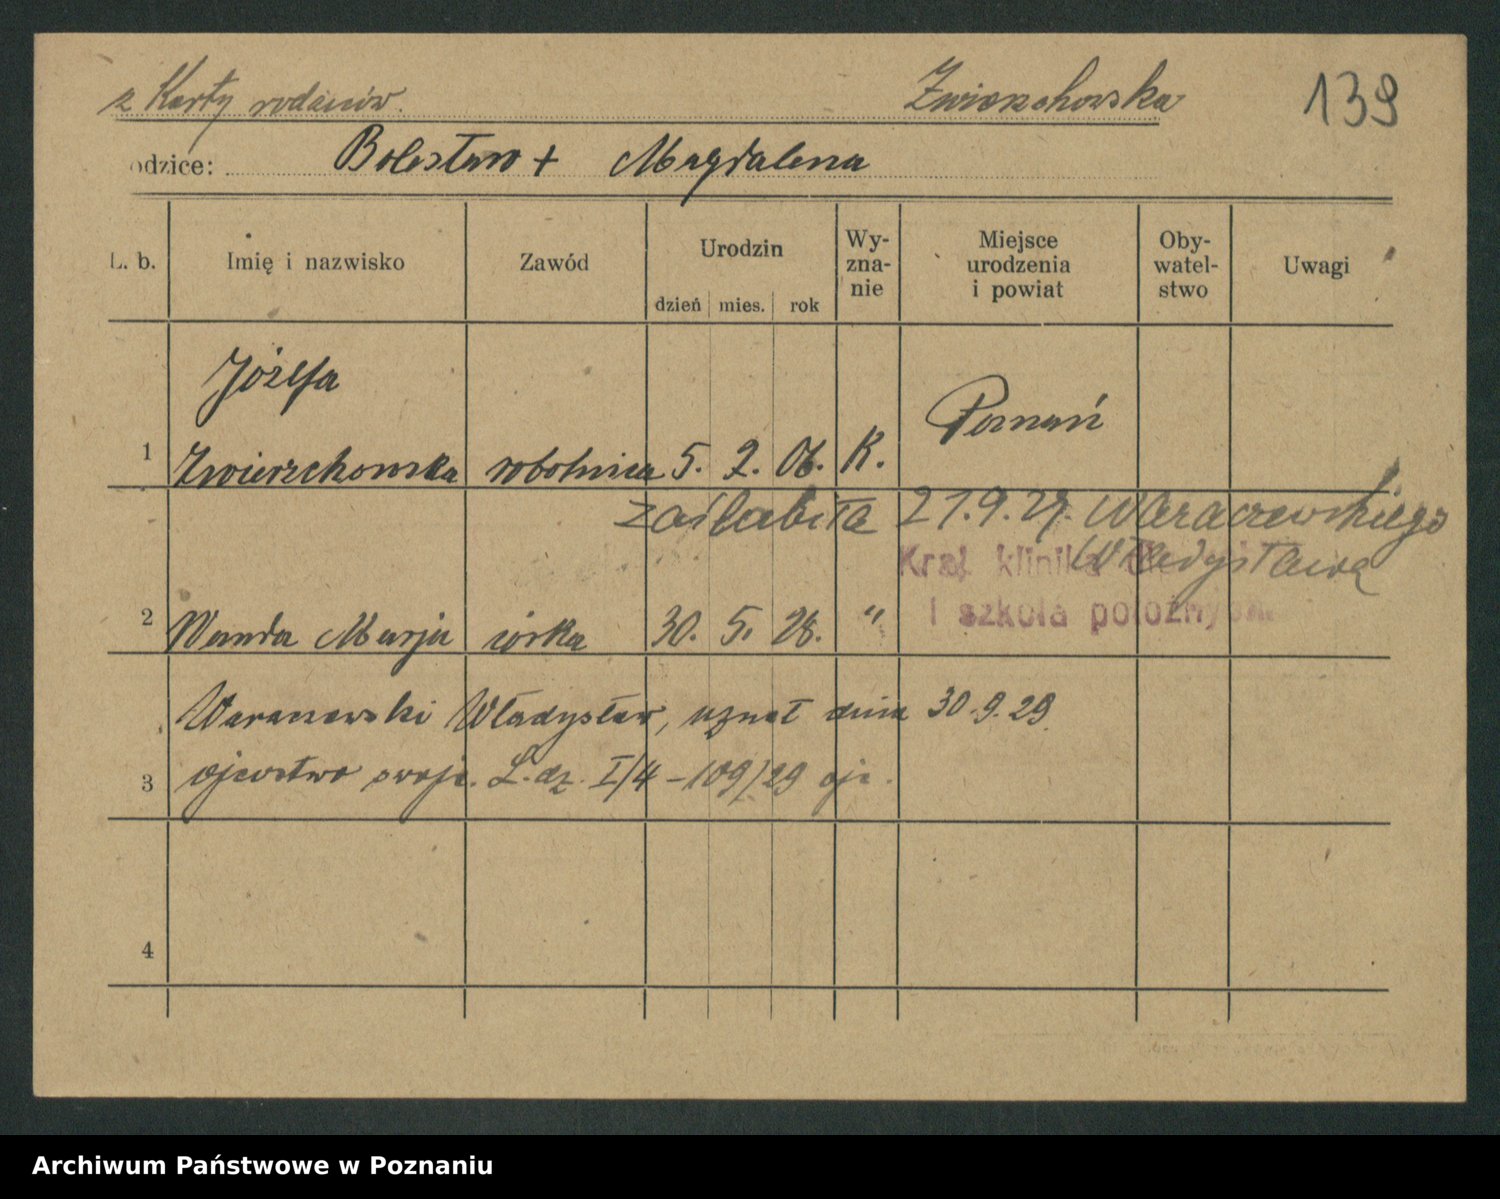 z Karty rodziców. Zwierzchowska 139
odzice: Bolesław + Magdalena
L. b. Imię i nazwisko Zawód Urodzin dzień mies. rok Wy-zna-nie Miejsce urodzenia i powiat Oby-watel-stwo Uwagi
Józefa
1 Zwierzchowska robotnica 5. 2. 06. K. Poznań
zaślubiła 21.9.29. Waraczewskiego
Władysława
Kraj. klinika
i szkoła położnych
2 Wanda Marja córka 30. 5. 28. "
Waraczewski Władysław, uznał dnia 30.9.29
3 ojcostwo swoje. L. dz. I/4 - 109/29 ojc.
4
Archiwum Państwowe w Poznaniu